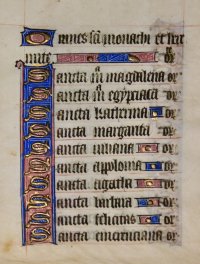 Omnes sci monachi et here
mite or
Sancta mᵃ magdalena or
Sancta mᵃ egypciaca or
Sancta katherina or
Sancta margareta or
Sancta iuliana or
Sancta appolonia or
Sancta agatha or
Sancta barbara or
Sancta felicitas or
Sancta emerenciana or